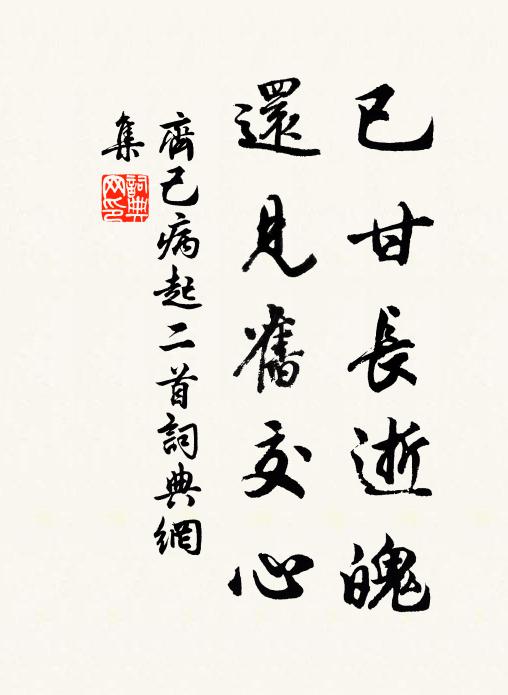 已甘長逝魄
還見舊交心
齊己病起二首詞典網
集
詞典網印